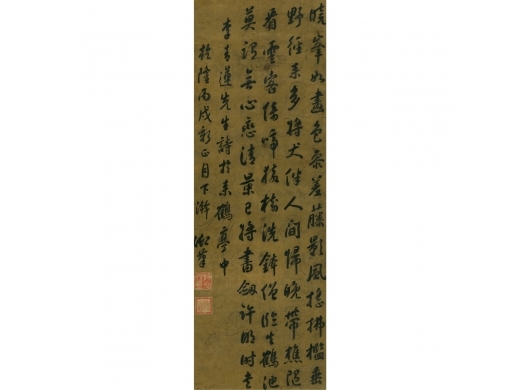 曉峯如畫色參差藤影風搖拂檻垂
野徑來多將犬伴人間歸晚帶樵隨
看雲客倚啼猿樹洗鉢僧臨失鶴池
莫謂無心戀清景已將書劍許明時
李青蓮先生詩於來鶴亭中
乾隆丙戌新正月下澣